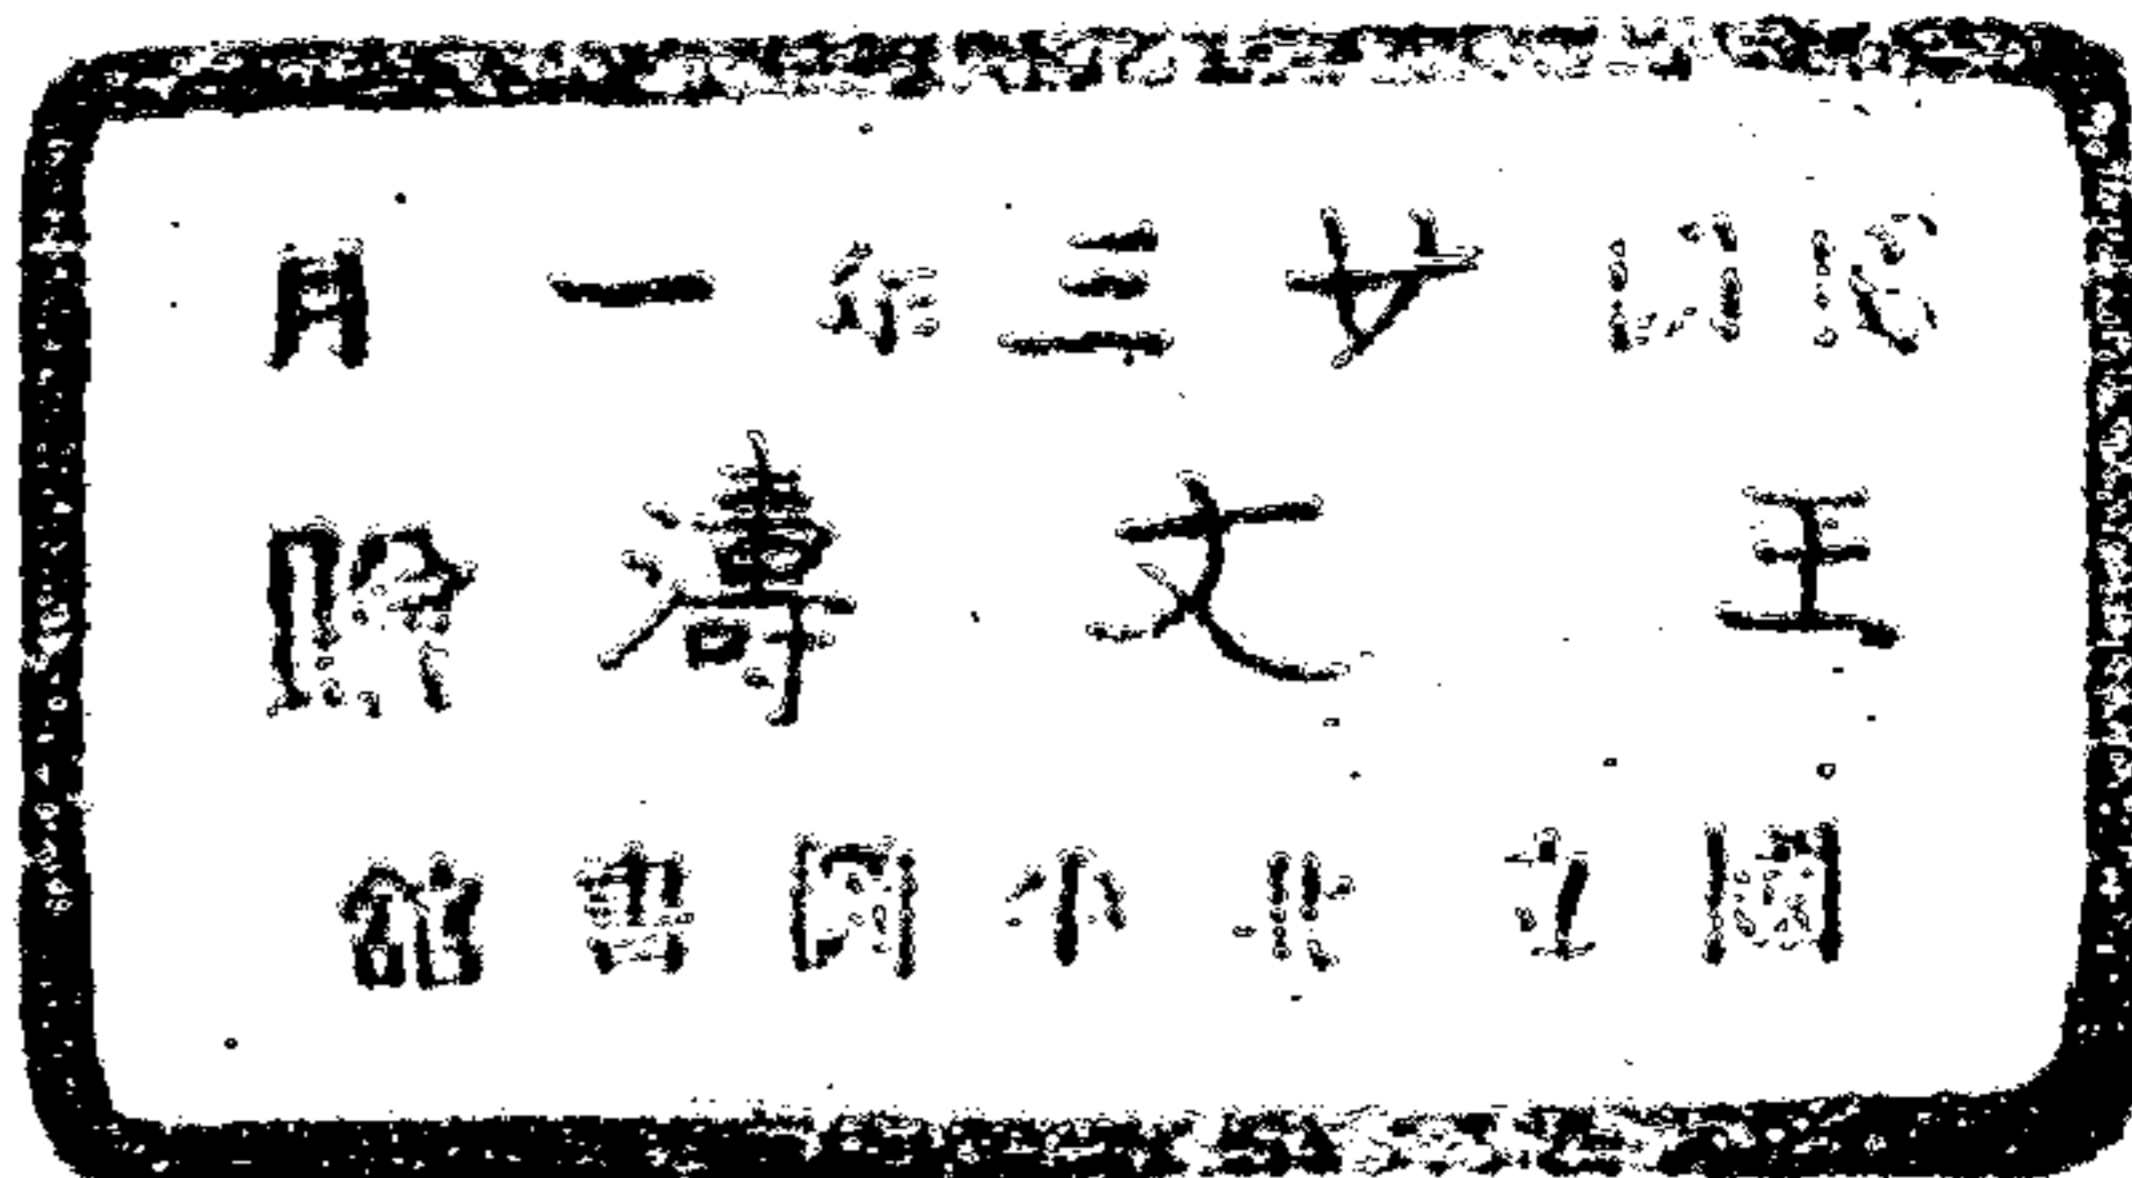 民國廿三年一月
王文濤贈
國立北平圖書館